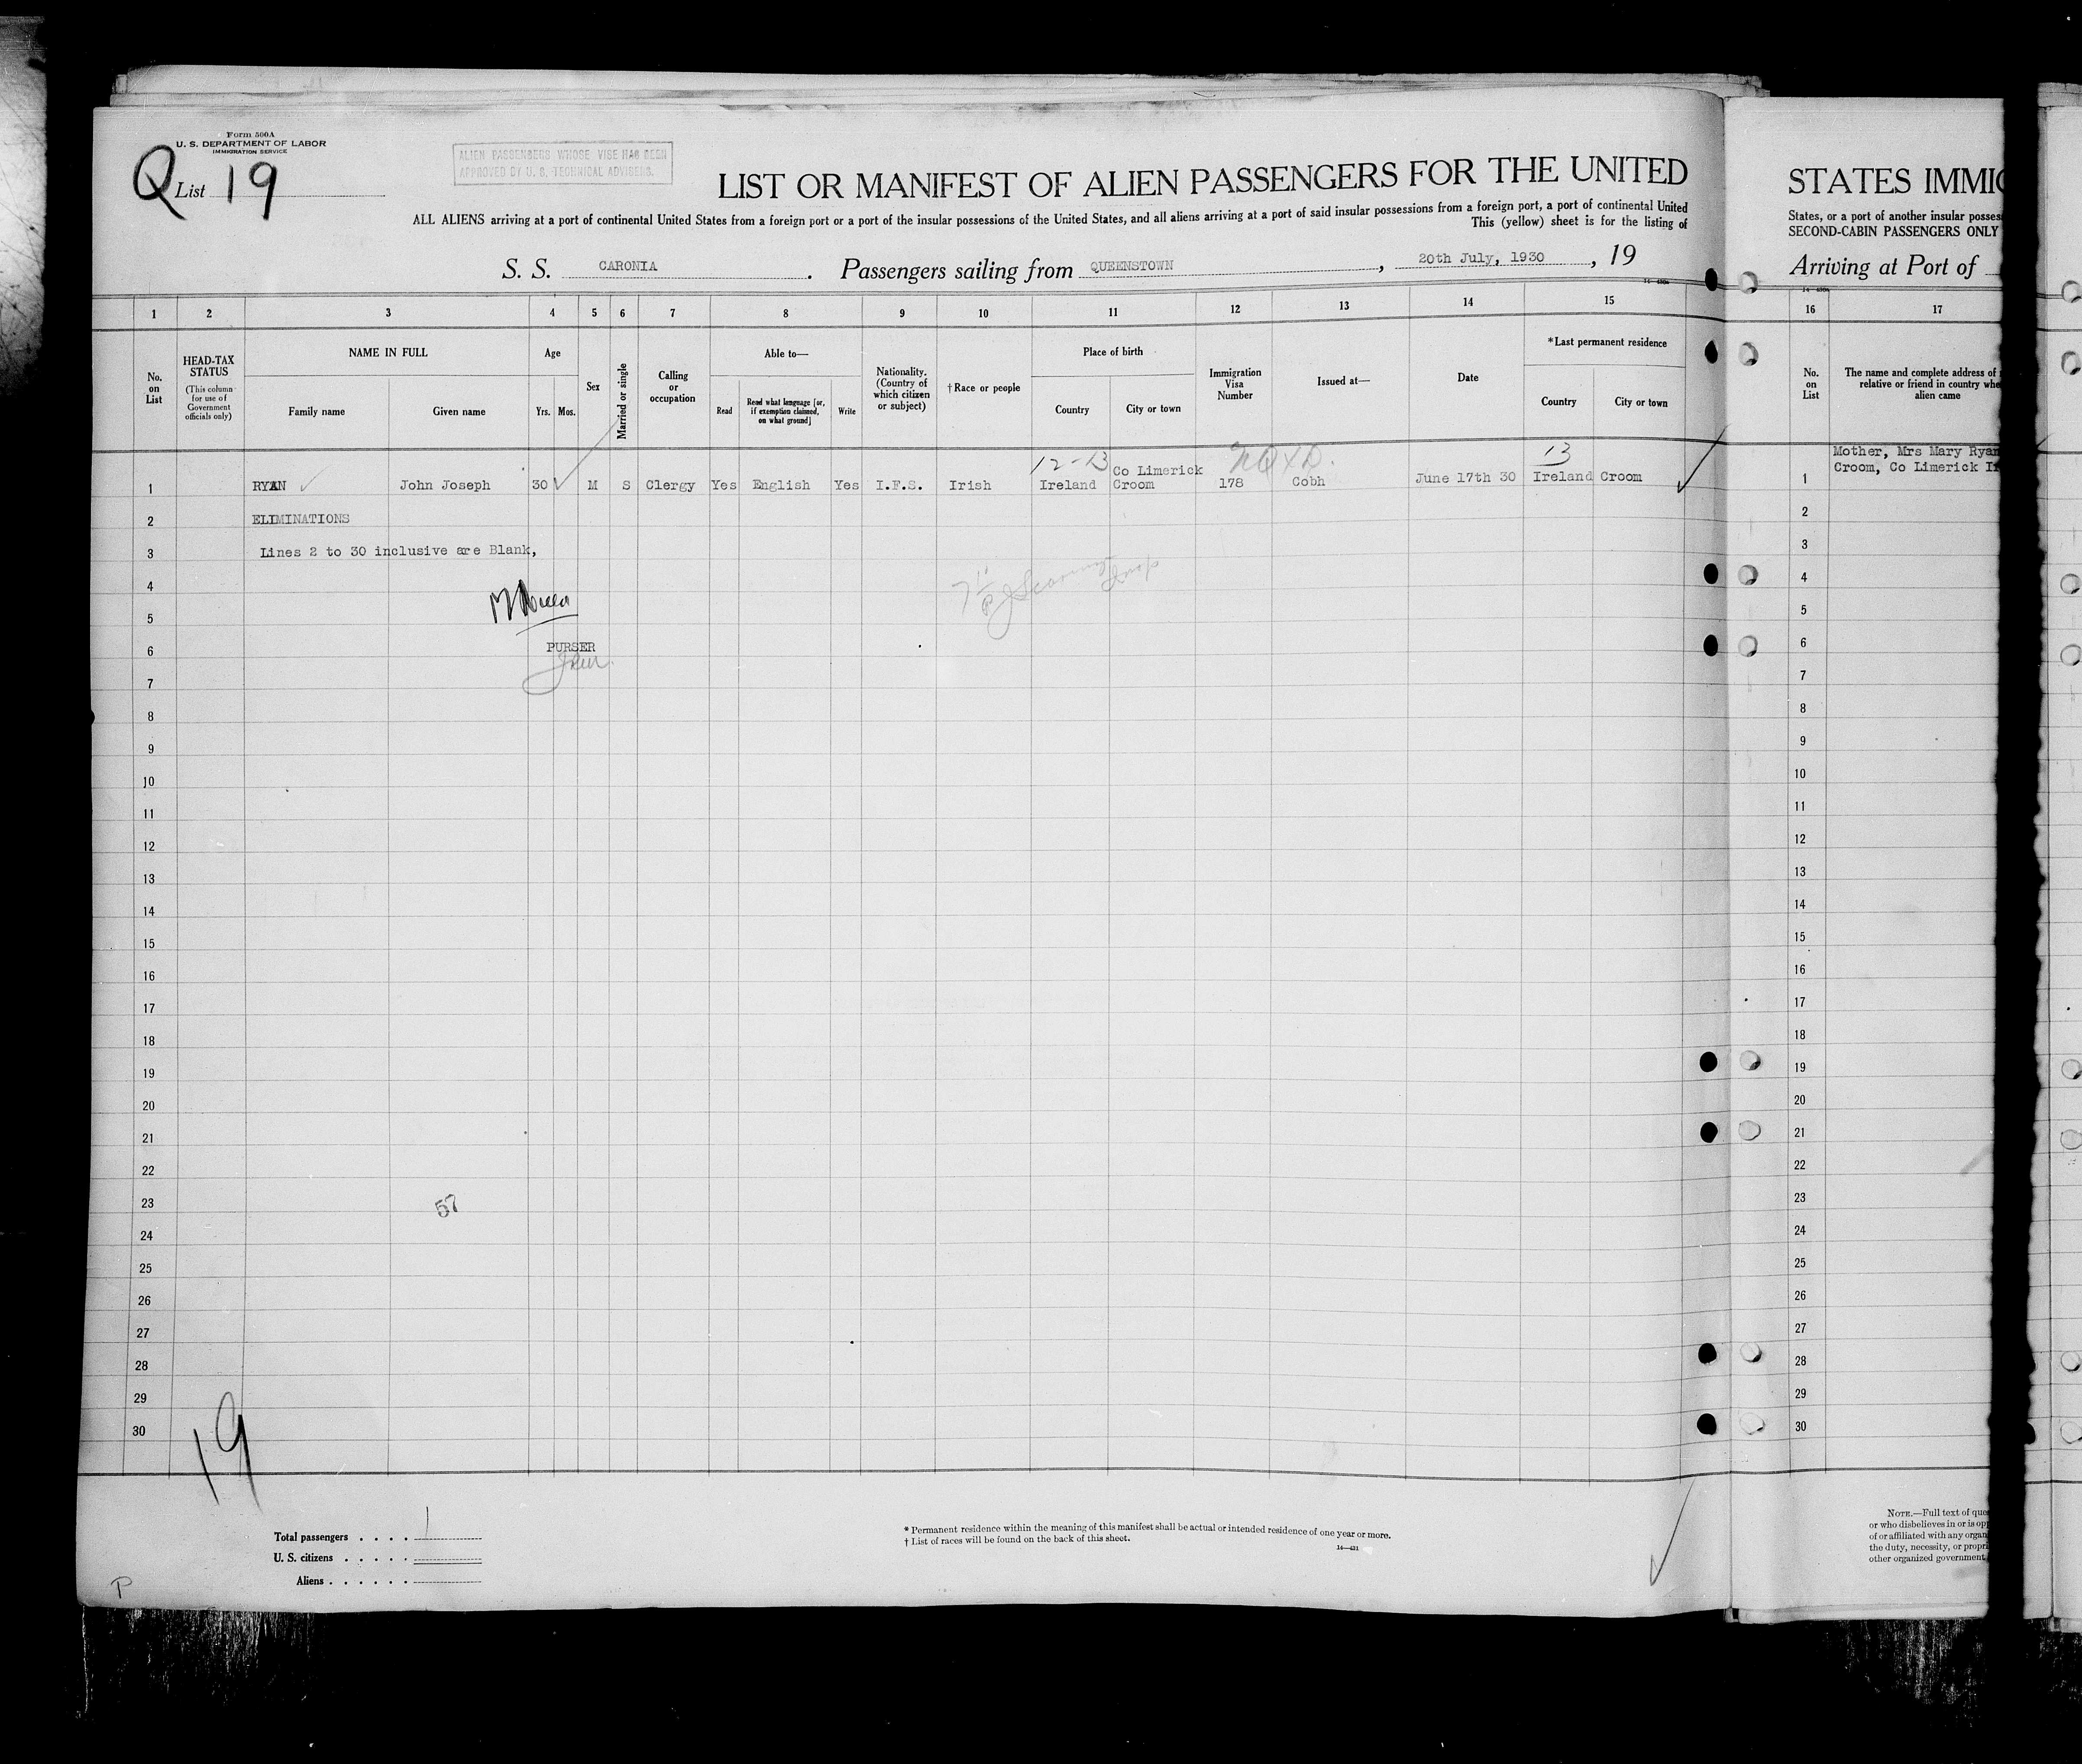 Form 500A
U. S. DEPARTMENT OF LABOR
IMMIGRATION SERVICE
Q List 19
ALIEN PASSENGERS WHOSE VISE HAS BEEN
APPROVED BY U. S. TECHNICAL ADVISERS.
LIST OR MANIFEST OF ALIEN PASSENGERS FOR THE UNITED
ALL ALIENS arriving at a port of continental United States from a foreign port or a port of the insular possessions of the United States, and all aliens arriving at a port of said insular possessions from a foreign port, a port of continental United
This (yellow) sheet is for the listing of
S. S. CARONIA . Passengers sailing from QUEENSTOWN , 20th July, 1930 , 19
1 2 3 4 5 6 7 8 9 10 11 12 13 14 15
No. on List
HEAD-TAX STATUS
(This column for use of Government officials only)
NAME IN FULL
Family name
Given name
Age
Yrs. Mos.
Sex
Married or single
Calling or occupation
Able to—
Read
Read what language [or, if exemption claimed, on what ground]
Write
Nationality. (Country of which citizen or subject)
†Race or people
Place of birth
Country
City or town
Immigration Visa Number
Issued at—
Date
*Last permanent residence
Country
City or town
12-13 Co Limerick NQXD. 13
1 RYAN John Joseph 30 M S Clergy Yes English Yes I.F.S. Irish Ireland Croom 178 Cobh June 17th 30 Ireland Croom
2 ELIMINATIONS
3 Lines 2 to 30 inclusive are Blank,
4
5
6 PURSER
7
8
9
10
11
12
13
14
15
16
17
18
19
20
21
22
23 57
24
25
26
27
28
29
30
19
Total passengers . . . . 1
U. S. citizens . . . . .
Aliens . . . . . .
P
* Permanent residence within the meaning of this manifest shall be actual or intended residence of one year or more.
† List of races will be found on the back of this sheet.
STATES IMMI
States, or a port of another insular posses
SECOND-CABIN PASSENGERS ONLY
Arriving at Port of
16 17
No. on List
The name and complete address of
relative or friend in country whe
alien came
Mother, Mrs Mary Ryan
1 Croom, Co Limerick I
2
3
4
5
6
7
8
9
10
11
12
13
14
15
16
17
18
19
20
21
22
23
24
25
26
27
28
29
30
NOTE.—Full text of que
or who disbelieves in or is op
of or affiliated with any organ
the duty, necessity, or propri
other organized government